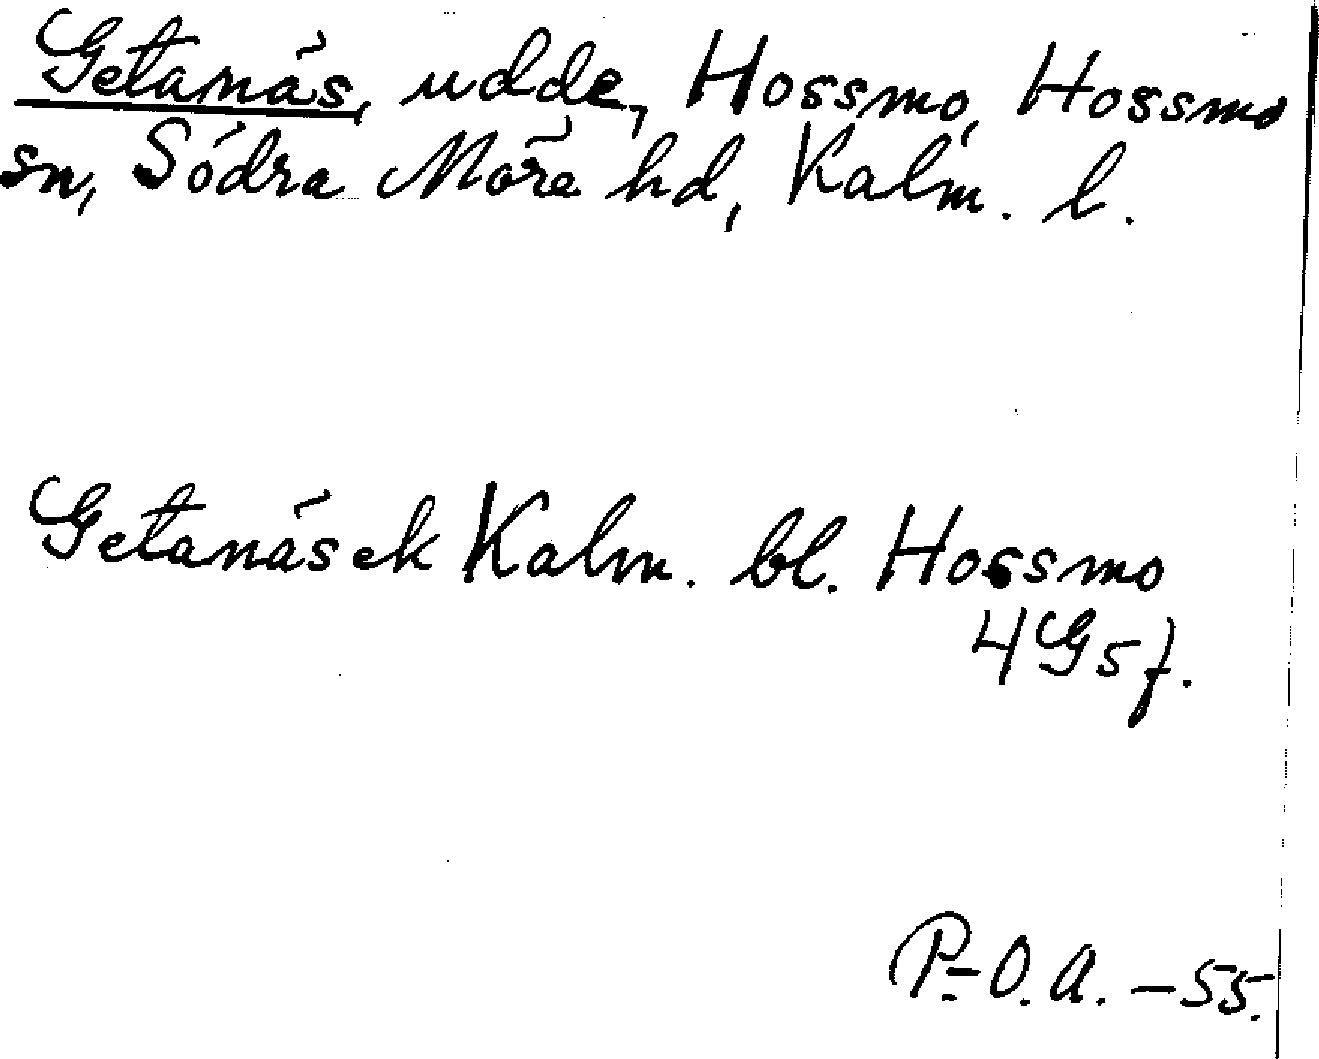 Getanäs, udde, Hossmo, Hossmo
sn, Södra Möre hd, Kalm. l.
Getanäs ek Kalm. bl. Hossmo
4G5f.
P.-O.A. – 55.